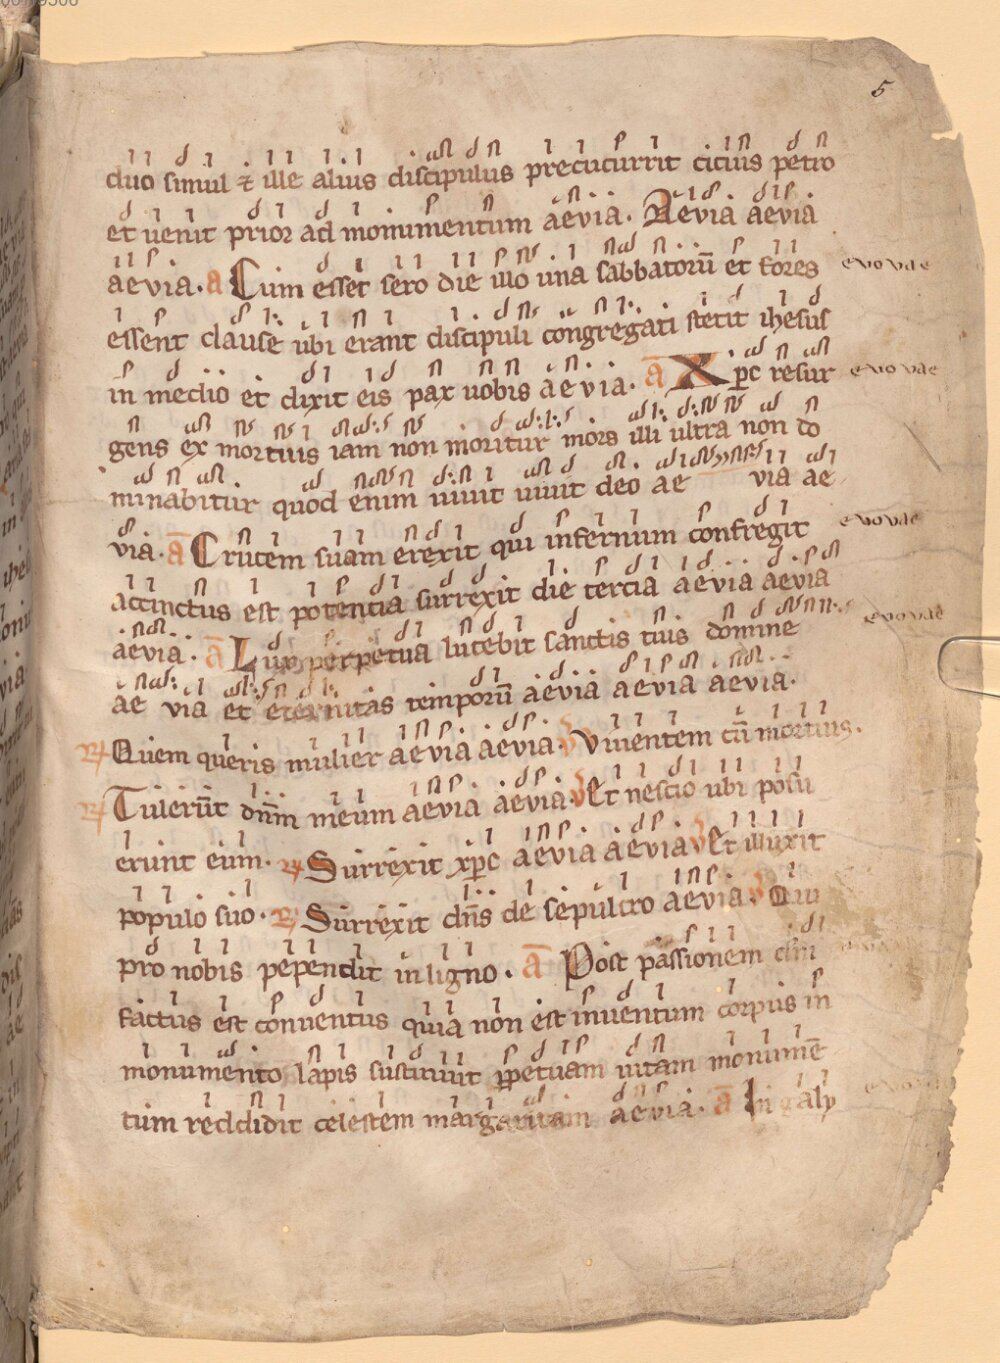 5
duo simul ⁊ ille alius discipulus precucurrit citius petro
et uenit prior ad monumentum aevia. Aevia aevia
aevia. a Cum esset sero die illo una sabbatorū et fores evovae
essent clause ubi erant discipuli congregati stetit ihesus
in medio et dixit eis pax uobis aevia. ā Xpc resur evovae
gens ex mortuis iam non moritur mors illi ultra non do
minabitur quod enim uiuit uiuit deo ae via ae
via. ā Crucem suam erexit qui infernum confregit evovae
accinctus est potentia surrexit die tercia aevia aevia
aevia. ā Lux perpetua lucebit sanctis tuis domine evovae
ae via et eternitas temporū aevia aevia aevia.
℟ Quem queris mulier aevia aevia. v Viuentem cū mortuis.
℟ Tulerūt dnm̄ meum aevia aevia. v Et nescio ubi posu
erunt eum. ℟ Surrexit xpc aevia aevia v Et illuxit
populo suo. ℟ Surrexit dn̄s de sepulcro aevia. v Qui
pro nobis pependit in ligno. ā Post passionem dn̄i
factus est conuentus quia non est inuentum corpus in
monumento lapis sustinuit ꝑpetuam uitam monumē
tum reddidit celestem margaritam aevia. ā In galy